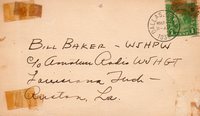 DALLAS,
BILL BAKER - W5HPW
C/o Amateur Radio W5HGT
Louisiana Tech -
Ruston, La.